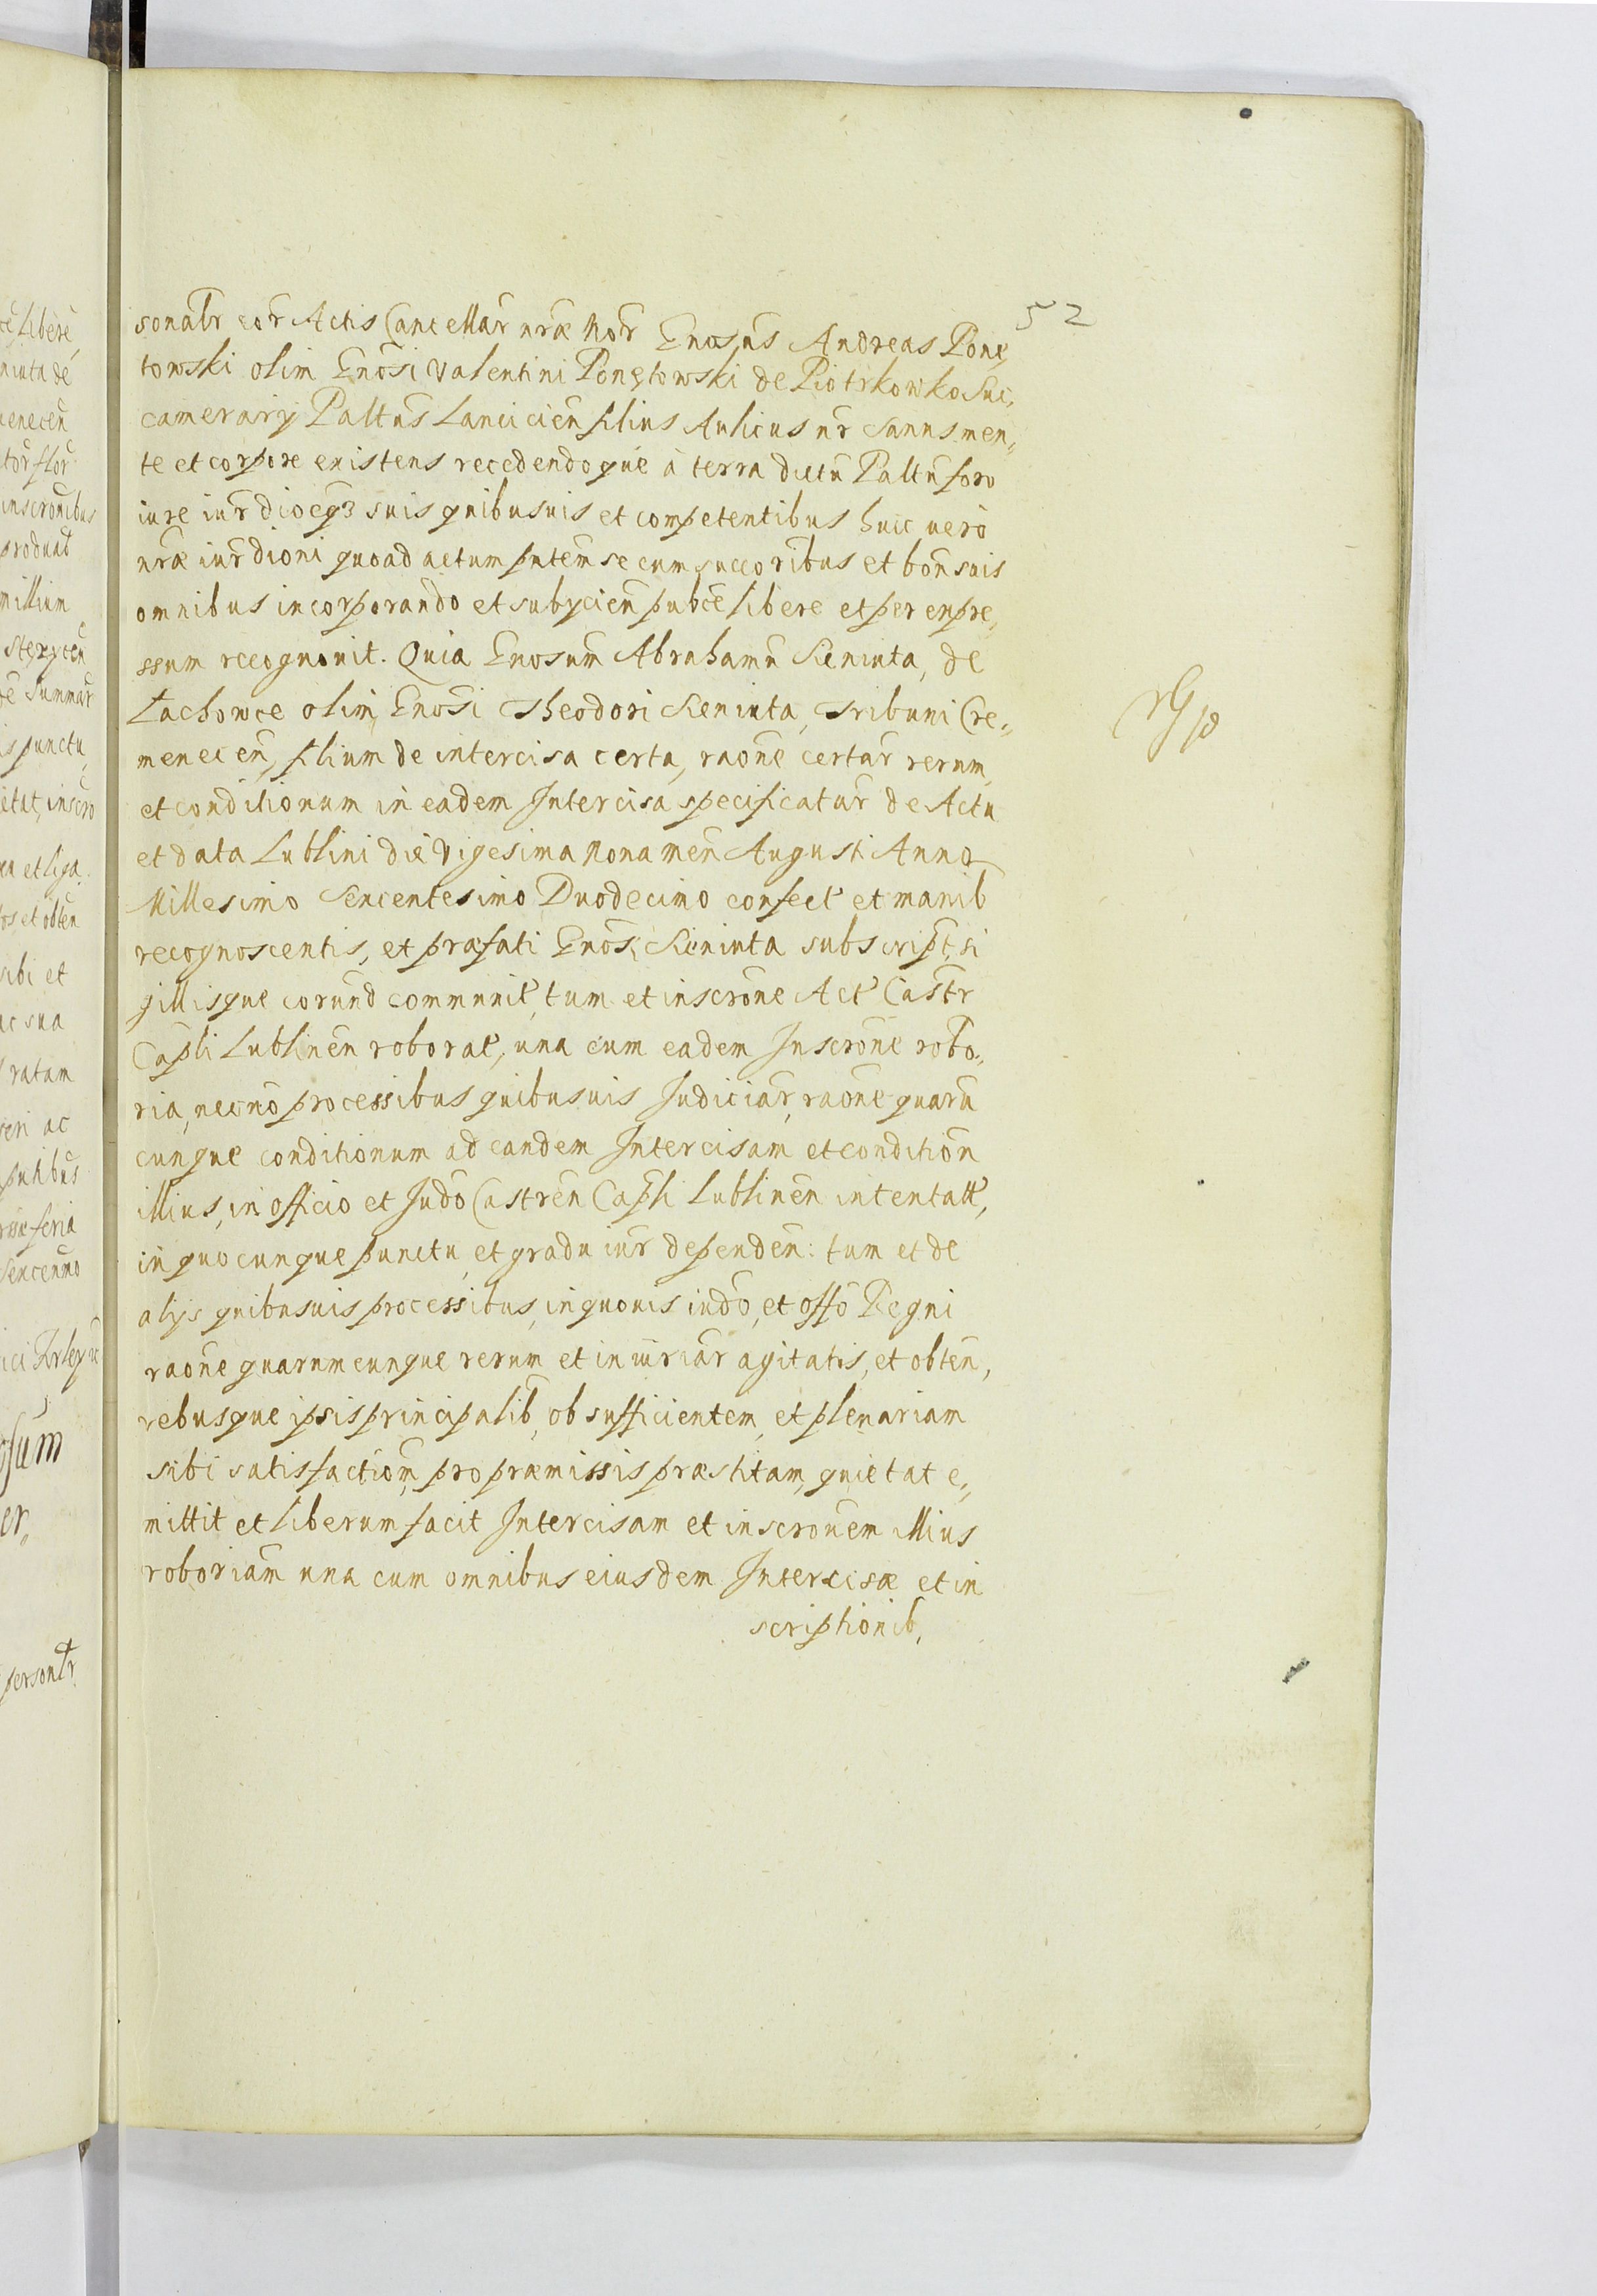 52
sonalr cor Actis Cancellar nræ Nor Gnosus Andreas Ponę,
towski olim Gnosi Valentini Ponętowski de Piotrkowko Suc,
camerarij Paltus Lanciciēn filius Aulicus nr Sanus men,,
te et corpore existens recedendoque à terra dictu Paltu foro
iure iurdioeqȝ suis quibusuis et competentibus huic uero
nræ iurdioni quoad actum pntem se cum succoribus et bon suis
omnibus incorporando et subijcien publce libere et per expre,,
ssum recognouit. Quia Gnosum Abrahamu Sieniuta, de
Lachowce olim Gnosi Theodori Sieniuta, Tribuni Cre,,
menecen, filium de intercisa certa, raone certar rerum,
et conditionum in eadem Intercisa specificatur de Actu
et data Lublini die Vigesima Nona Men Augusti Anno
Millesimo Sexcentesimo Duodecimo confect et manib
recognoscentis, et præfati Gnosi Sieniuta subscript, si
gillisque eorund communit, tum et inscrone Act Castr
Capli Lublinen roborat, una cum eadem Inscrone robo,,
ria, necno processibus quibusuis Iudiciar, raone quaru
cunque conditionum ad eandem Intercisam et condition
illius, in officio et Judo Castren Capli Lublinen intentatt,
in quocunque punctu, et gradu iur dependen: tum et de
alijs quibusuis processibus, in quouis iudo, et offo Regni
raone quarumcunque rerum et iniuriar agitatis, et obten,
rebusque ipsis principalib, ob sufficientem, et plenariam
sibi satisfaction, pro præmissis præstitam, quietat e,,
mittit et liberum facit Intercisam et inscronem illius
roboriam una cum omnibus eiusdem Intercisæ et in
scriptionib,